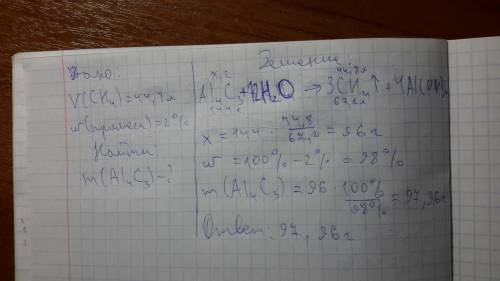 Дано:
V(CH₄)=44,8л
w(примеси)=2%
Найти
m(Al₄C₃)-?
Решение:
x, г 44,8л
Al₄C₃+12H₂O → 3CH₄↑+4Al(OH)₃
144г 67,2л
x = 144 · 44,8/67,2 = 96г
w = 100% - 2% = 98%
m(Al₄C₃) = 96 · 100%/98% = 97,96г
Ответ: 97,96г